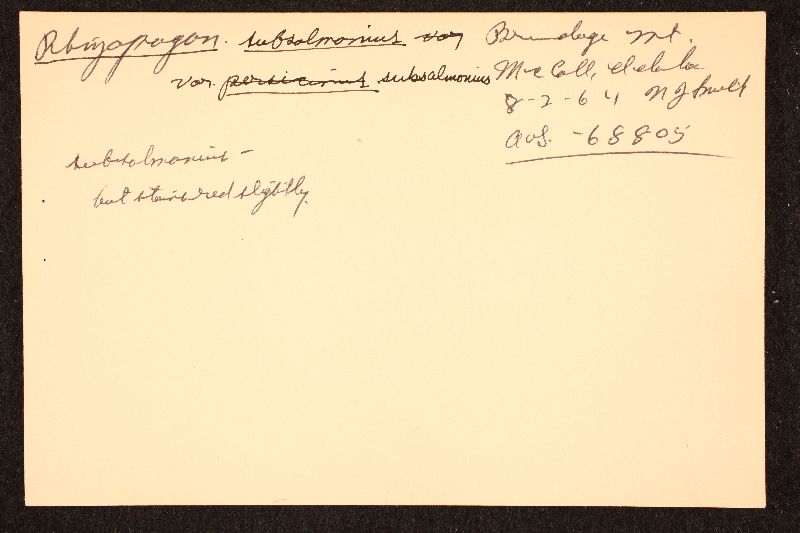 Rhizopogon. subsalmonius var
var persicinus subsalmonius
Brundage Mt.
McCall, Idaho
8-2-64 N J Smith
AHS. -68805
subsalmonius -
but stains red slightly.